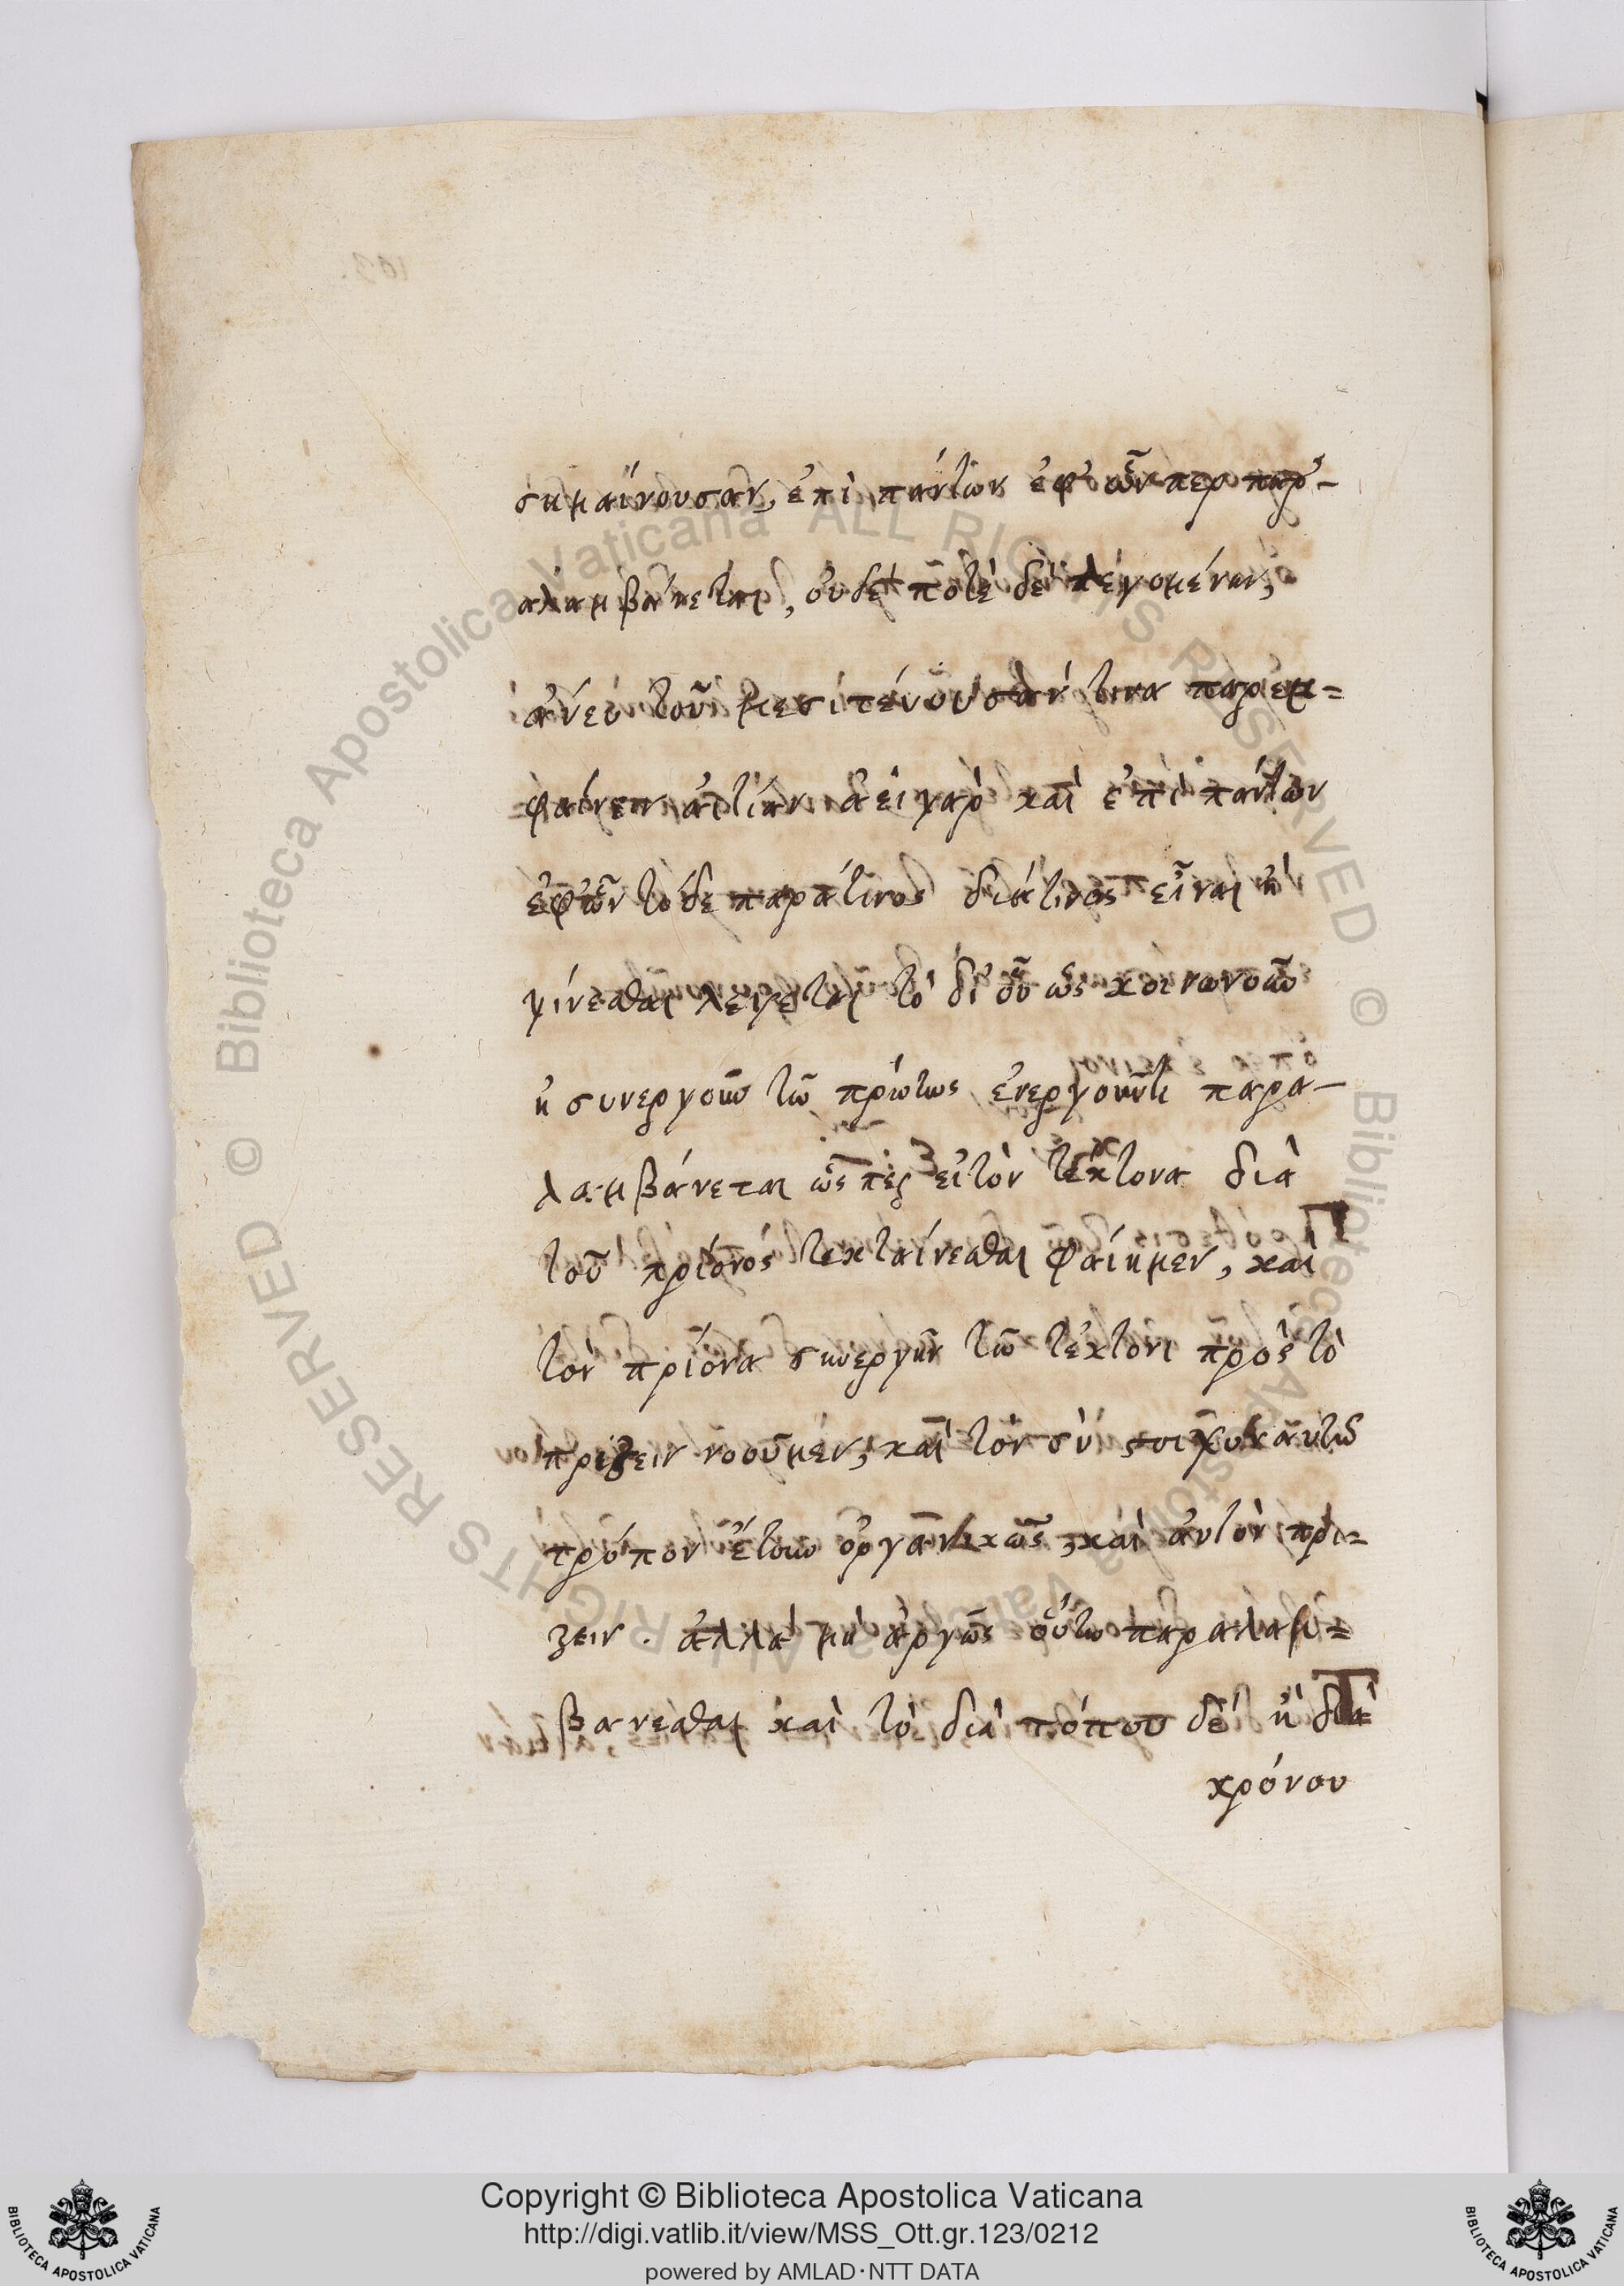 σημαίνουσαν, ἐπὶ πάντων ἐφ' ὧν περ παρ-
αλαμβάνεται, οὐδέ ποτὲ δὲ λέγομένην,
ἄνευ τοῦ μεσιτεύουσάν τινα παρεμ=
φαίνειν αἰτίαν ἀεὶ γαρ καὶ ἐπὶ πάντων
ἐφ' ὧν τόδε παρά τινος διά τινος εἶναι ἢ
γίνεσθαι λέγεται τὸ δι' οὗ ὡς κοινωνοῦν
ἢ συνεργοῦν τῶ πρώτως ἐνεργοῦντι παρα-
λαμβάνεται ὥς περ εἰ τὸν τέκτονα διὰ
τοῦ πρίονός τεκταίνεσθαι φαίημεν, καὶ
τὸν πρίονα συνεργεῖν τῶ τέκτονι πρὸς τὸ
πρίζειν νοοῦμεν, καὶ τὸν σύστοιχον αὐτῶ
τρόπον ἤτουν ὀργανικῶς, καὶ ἀυτὸν πρί=
ζειν. ἀλλὰ μὴ ἀργῶς οὕτω παραλαμ=
βανεσθαι καὶ τὸ διὰ τόπου δὲ ἢ διὰ
χρόνου
Copyright © Biblioteca Apostolica Vaticana
http://digi.vatlib.it/view/MSS_Ott.gr.123/0212
powered by AMLAD·NTT DATA